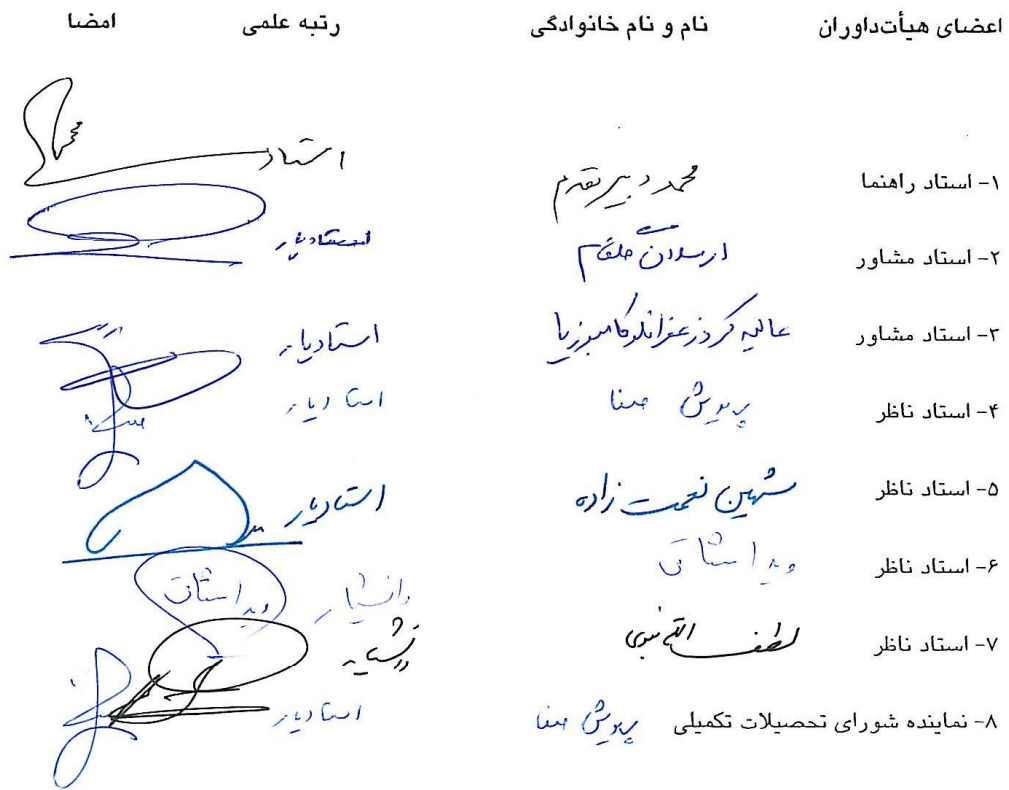 اعضای هیأت‌داوران نام و نام خانوادگی رتبه علمی امضا
۱- استاد راهنما محمد دبیرمقدم استاد
۲- استاد مشاور ارسلان گلفام استادیار
۳- استاد مشاور عالیه کرد زعفرانلو کامبوزیا استادیار
۴- استاد ناظر استادیار
۵- استاد ناظر شهین نعمت زاده استادیار
۶- استاد ناظر دانشیار
۷- استاد ناظر لطف الله نبوی دانشیار
۸- نماینده شورای تحصیلات تکمیلی استادیار